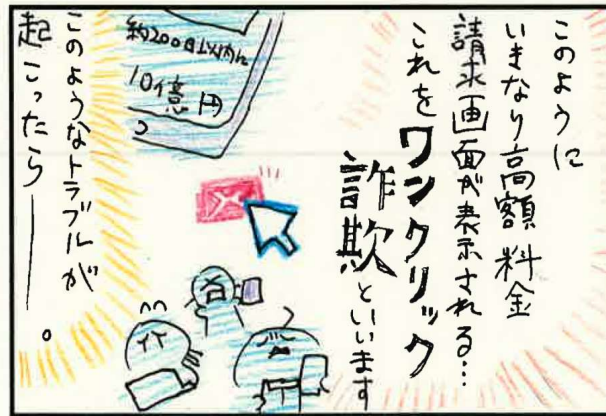 このように
いきなり高額料金
請求画面が表示される…
これをワンクリック
詐欺といいます
約200日以内に
10億円
このようなトラブルが
起こったら――。